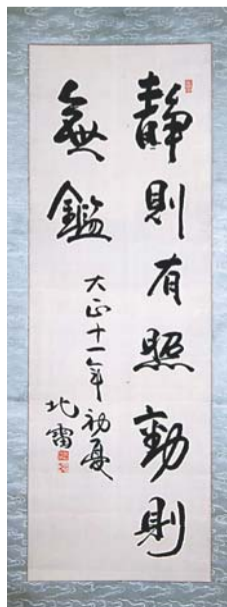 静則有照動則
無鑑
大正十一年初夏
北雷